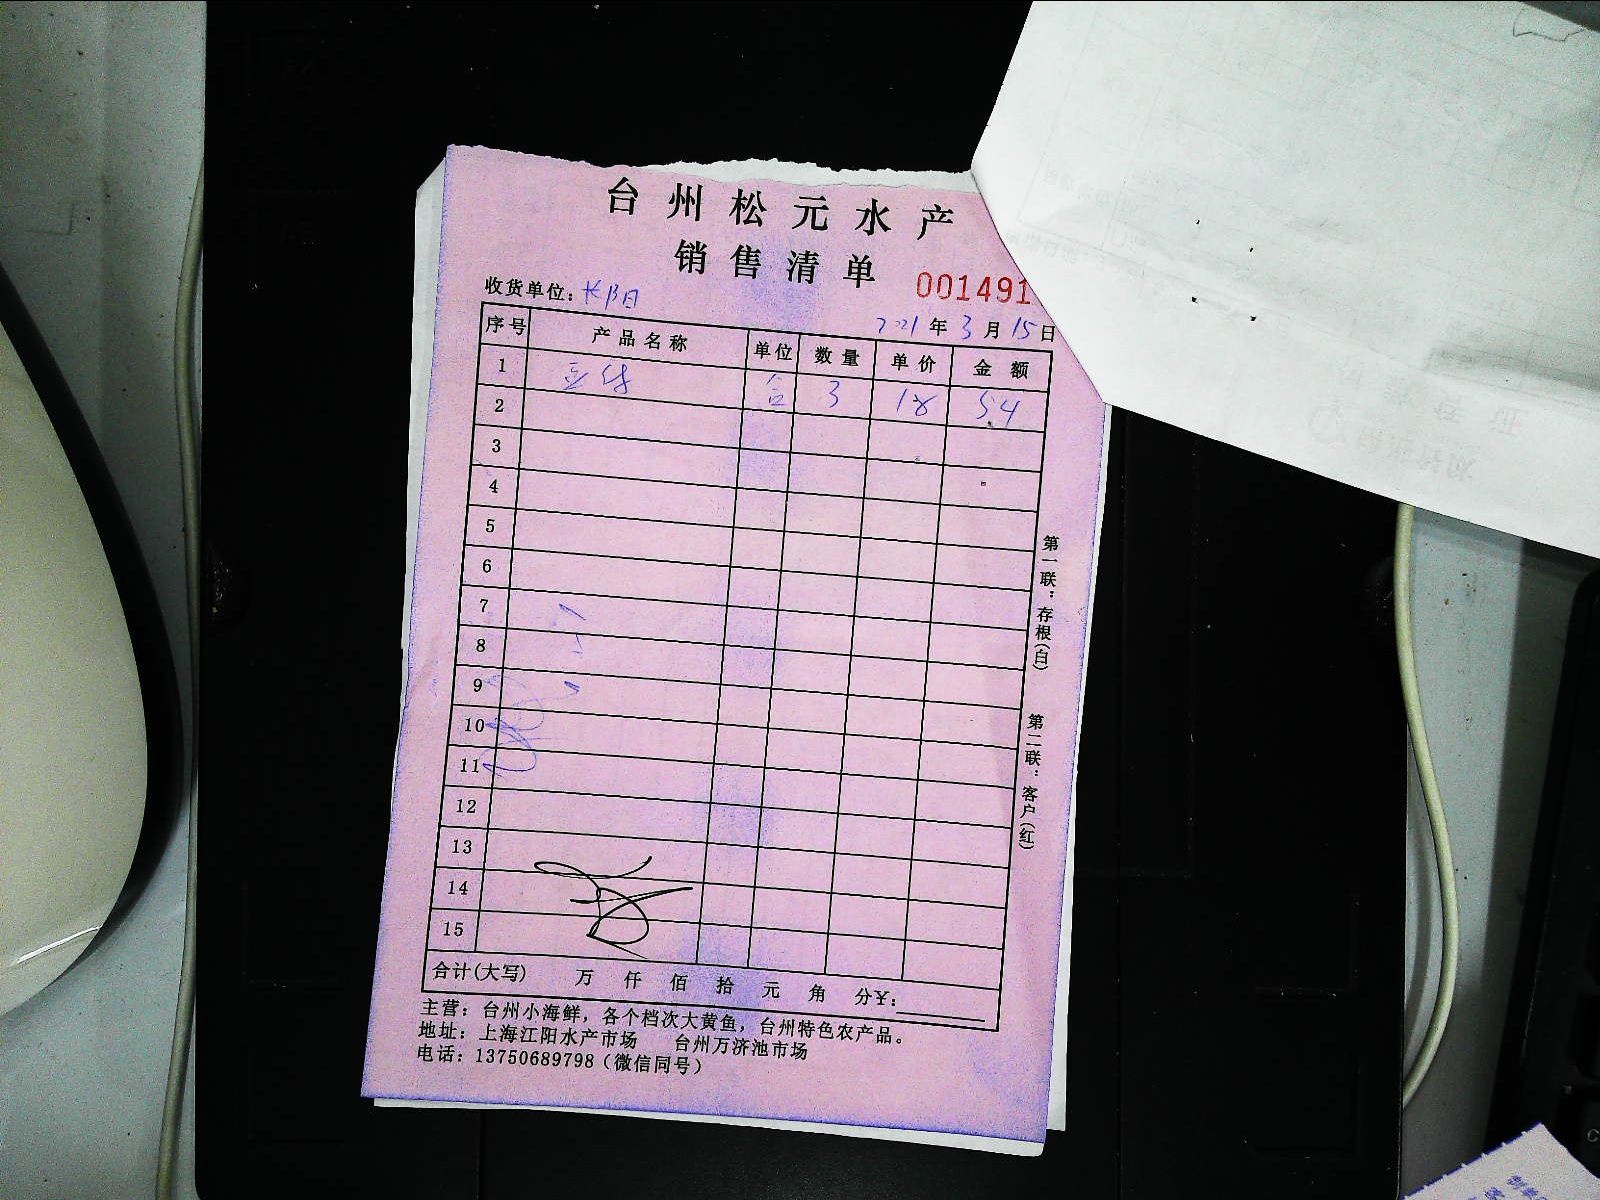 台州松元水产
销售清单
001491
收货单位：长阳
2021年3月15日
序号 产品名称 单位 数量 单价 金额
1 盒 3 18 54
2
3
4
5
6
7
8
9
10
11
12
13
14
15
合计(大写) 万 仟 佰 拾 元 角 分¥：
主营：台州小海鲜，各个档次大黄鱼，台州特色农产品。
地址：上海江阳水产市场 台州万济池市场
电话：13750689798（微信同号）
第一联：存根(白)
第二联：客户(红)